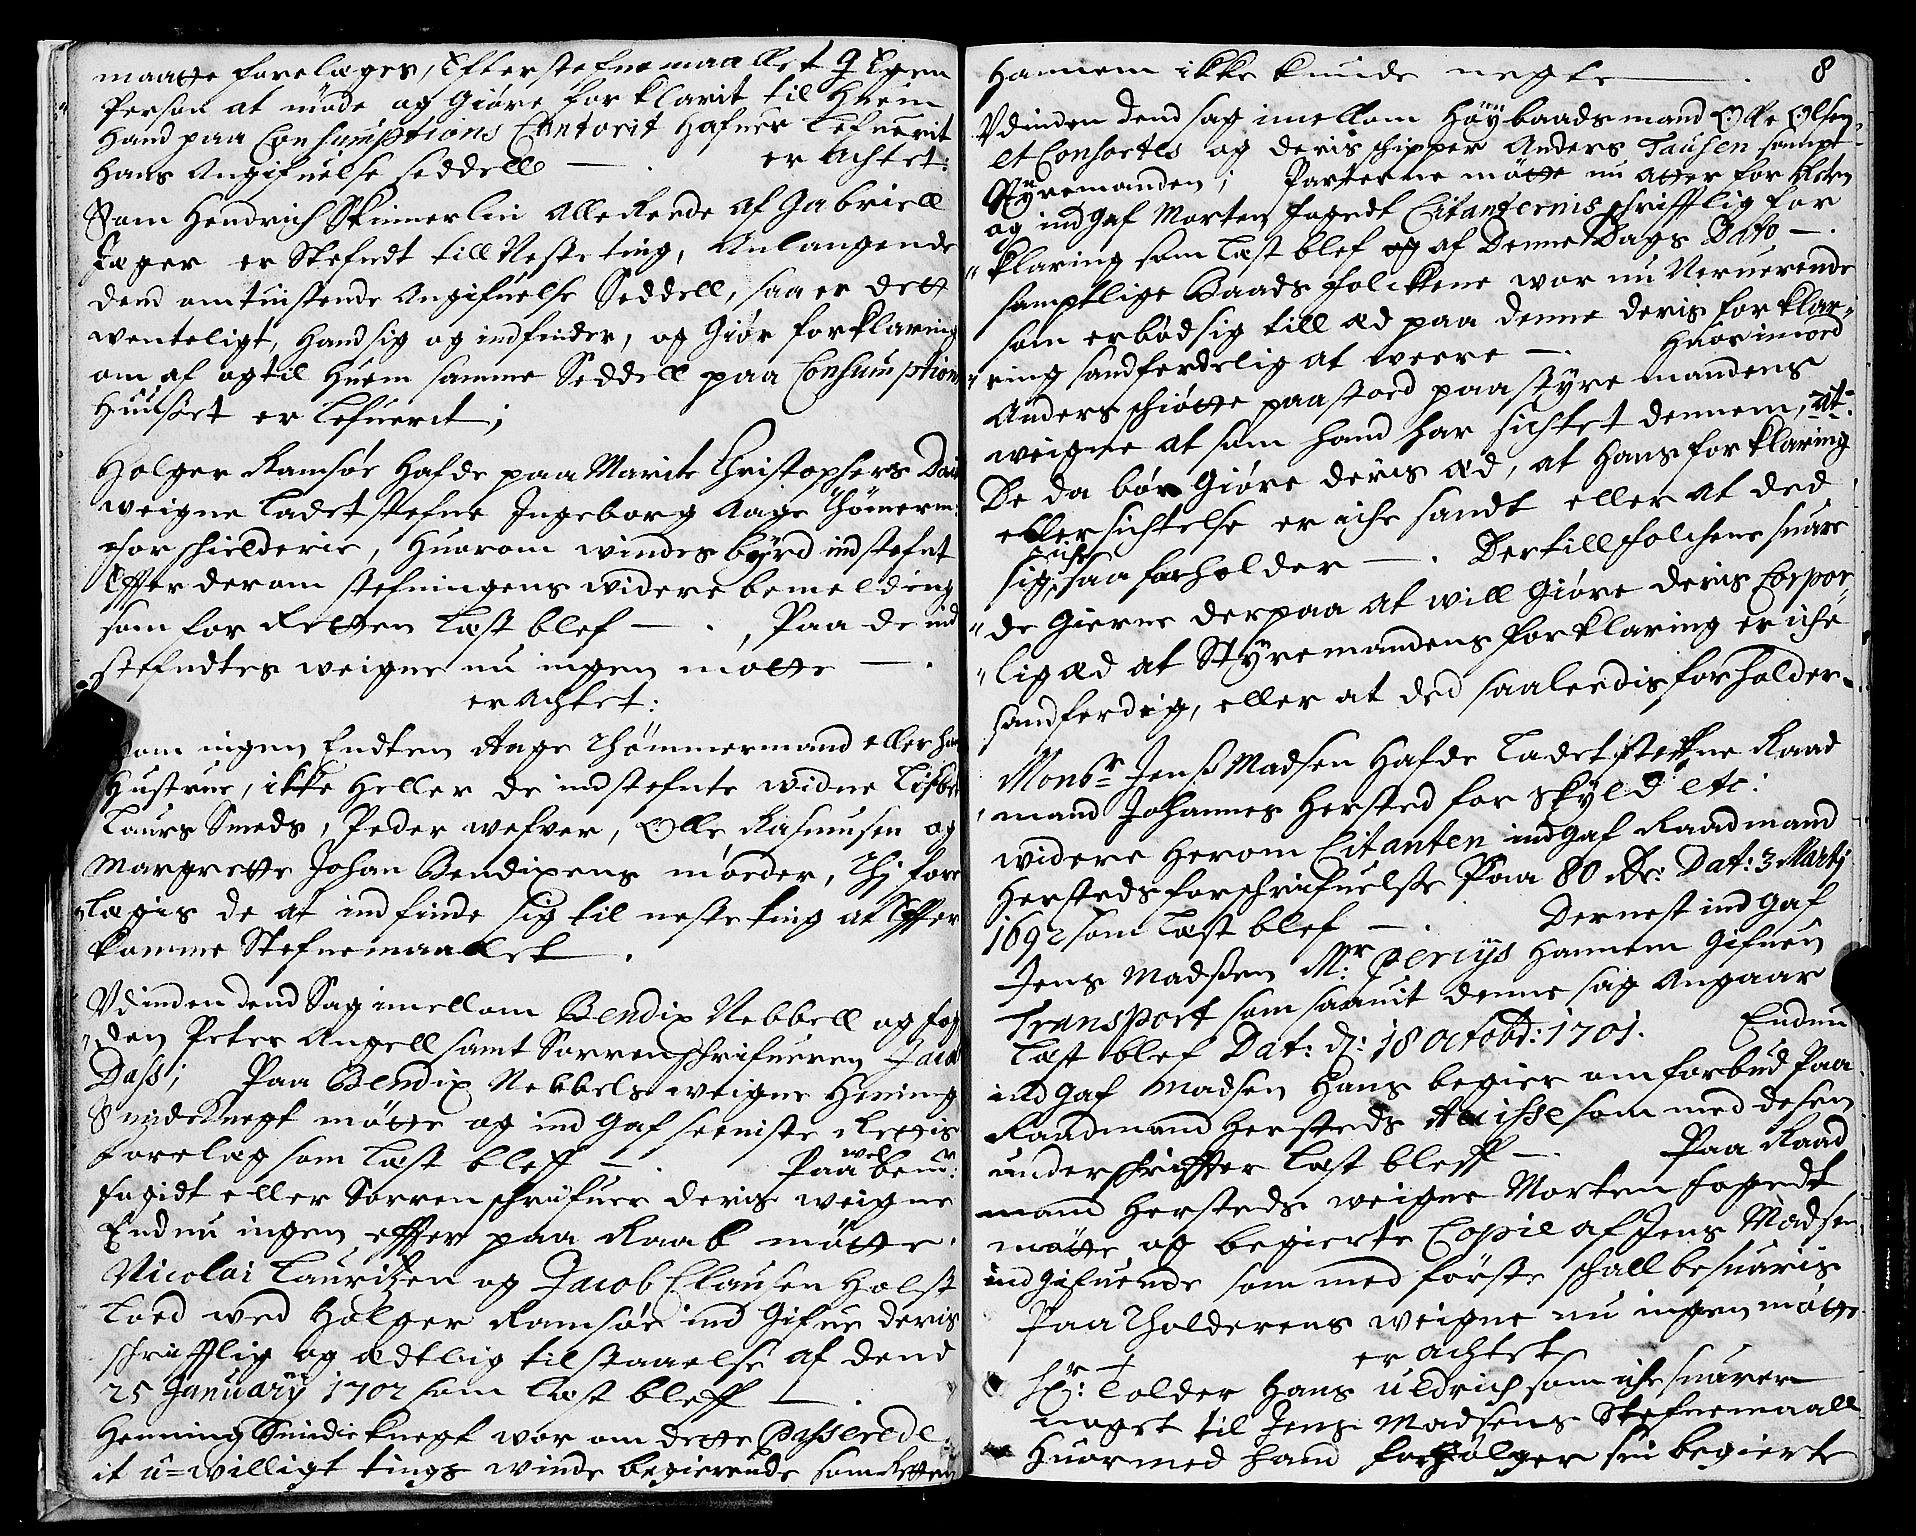 maatte forelæges, Efter stefnemaallet J Egen
Person at møde og Giøre forklarit til Huem
Hand paa Consumptions Contorit Hafuer lefuerit
Hans Angifuelse Seddell — . er Achtet:
Som Hendrich Skinnerlin allereede af Gabriell
Eeger er Stefndt till Neste ting, Anlangende
dend omtuistende Angifuelse Seddell, saa er dett
wenteligt, Hand sig og indfinder, og Giør forklaring
om af og til Huem samme Seddell paa Consumptions
Huuset er lefuerit;
Holger Ramsøe Hafde paa Marite Christophers Datt
weigne ladet stefne Jngeborg Aage Thømerm:
for schielderie, Huorom windes byrd indstefnt
Effter derom stefningens widere bemelding
som for Retten læst blef — . Paa de ind
stefndtes weigne nu ingen møtte — .
er Achtet:
Som ingen Endten Aage Thømmermand eller hans
Hustrue, ikke Heller de indstefnte widne Lisbet
Laurs Smeds, Peder wefver, Olle Rasmusen og
Margrette Johan Bendixens moeder, Thj fore
læegis de at indfinde sig til neste ting at Effter
komme Stefnemaallet .
Vdinden dend Sag imellom Bendix Nebbell og fog
den Peter Angell samt Sorrenschrifueren Jacob
Dass; Paa Bendix Nebbels weigne Hening
Snideknegt møtte og ind Gaf seeniste Rettis
forelæg som læst bleff — . Paa welbem:te
fogidt eller Sorrenschrifuer deris weigne
Endnu ingen effter paa Raab møtte.
Nicolai Lauritzen og Jacob Clausen Holst
loed wed Holger Ramsøe ind Gifue deris
schrifftlig og ædtlig tilstaaelse af dend
25 January 1702 som læst bleff — .
Henning Snidieknegt wor om dette Passerede
it u=willigt tings winde begierende som Retten
Hannem ikke kunde negte — . 8
Vdinden dend sag imellom Høybaadsmand Olle Olsen
et Consortes og deris schipper Anders Tausen sampt
Styremanden; Parterne møtte nu Atter for Retten
og indgaf Morten fogedt Citanternis schrifftlig for
klaring som læst blef af Denne Dags Dato — .
samptlige Baads folckene wor nu Neruerende
som erbød sig till æd paa denne deris forklar
ring sandferdelig at weere — . Huorimod
Anders schiøtte paastoed paa styremandens
weigne at som hand har sichtet dennem, at
De da bør Giøre deris æd, at Hans forklaring
eller sichtelse er iche sandt eller at ded
sig iche saa forholder — . Dertill folchene suare
de Gierne derpaa at will Giøre deris Corpor
lig æd at Styremandens forklaring er iche
sandferdig, eller at ded saaleedis forholder.
Mons:r Jenß Madsen Hafde ladet stefne Raad
mand Johannes Hersted for skyld etc:
widere Herom Citanten indgaf Raadmand
Hersteds forschrifuelse Paa 80 Rdr: Dat: 3 Martj
1692 som læst blef — . Dernest ind Gaf
Jens Madsen M:r Perciys Hannem Gifuen
Transport som saauit denne sag Angaar
læst blef Dat: d: 18 octobr: 1701. Endnu
ind Gaf Madsen Hans begier om forbud Paa
Raadmand Hersteds Auisse som med desen
underschriffter læst bleff — . Paa Raad
mand Hersteds weigne Morten fogedt
møtte og begierte Copie af Jens Madsen
indgifuende som med første schall besuaris
Paa Tholderens weigne nu ingen møtte
er achtet
Sr: Tolder Hans uldrich som iche suarer
noget til Jens Madsens Stefnemaall
Huormed hand forfølger sin begierte